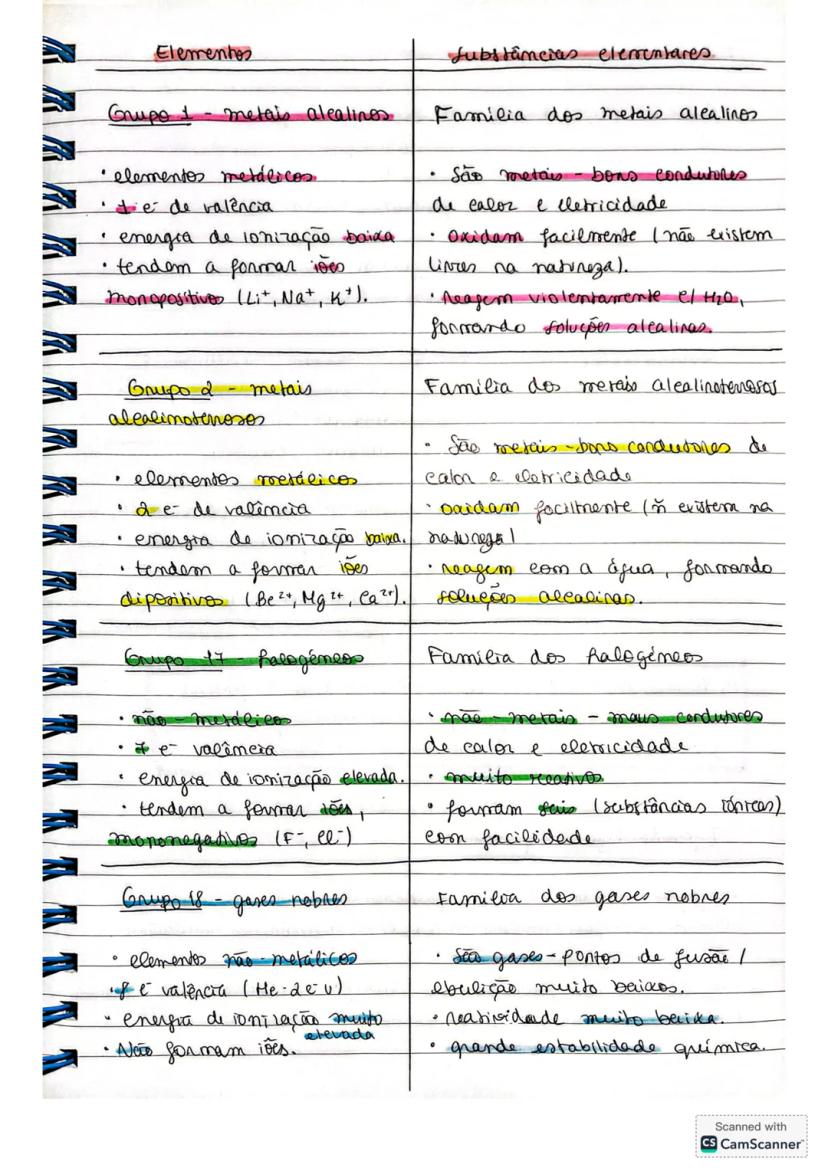 Elementos
Substâncias elementares
Grupo 1 - metais alcalinos
• elementos metálicos
• 1 e⁻ de valência
• energia de ionização baixa
• tendem a formar iões
monopositivos (Li⁺, Na⁺, K⁺).
Família dos metais alcalinos
• São metais - bons condutores
de calor e eletricidade
• oxidam facilmente (não existem
livres na natureza).
• Reagem violentamente c/ H₂O,
formando soluções alcalinas.
Grupo 2 - metais
alcalinoterrosos
• elementos metálicos
• 2 e⁻ de valência
• energia de ionização baixa.
• tendem a formar iões
dipositivos (Be²⁺, Mg²⁺, Ca²⁺).
Família dos metais alcalinoterrosos
• São metais - bons condutores de
calor e eletricidade
• oxidam facilmente (ñ existem na
natureza)
• reagem com a água, formando
soluções alcalinas.
Grupo 17 - halogéneos
• não - metálicos
• 7 e⁻ valência
• energia de ionização elevada.
• tendem a formar iões,
mononegativos (F⁻, Cl⁻)
Família dos halogéneos
• não - metais - maus condutores
de calor e eletricidade
• muito reativos
• formam sais (substâncias iónicas)
com facilidade
Grupo 18 - gases nobres
• elementos não - metálicos
• 8 e⁻ valência (He - 2 e⁻ v)
• energia de ionização muito
elevada
• Não formam iões.
Família dos gases nobres
• São gases - pontos de fusão /
ebulição muito baixos.
• reatividade muito baixa.
• grande estabilidade química.
Scanned with
CS CamScanner